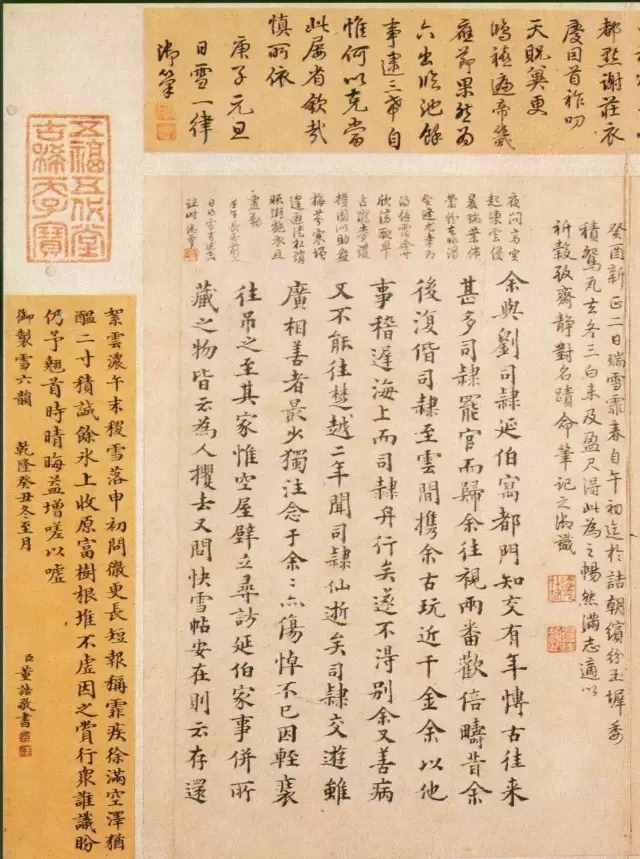 都點謝莊衣
慶因首祚叨
天貺冀更
鴻禧遍帝畿
應節果然為
六出臨池餘
事逮三希自
惟何以克當
此屢省欽哉
慎所依
庚子元旦
日雪一律
御筆
癸酉新正一日瑞雪霏春自午初迄於詰朝繽紛玉墀委
積鴛瓦去冬三白未及盈尺得此為之暢然滿志適以
祈穀致齋靜對名蹟命筆記之御識
余與劉司隸延伯寓都門知交有年博古往來
甚多司隸罷官而歸余往視兩番歡倍疇昔余
後復偕司隸至雲間攜余古玩近千金余以他
事稽遲海上而司隸舟行矣遂不得別余又善病
又不能往楚越二年聞司隸仙逝矣司隸交遊雖
廣相善者最少獨注念于余〻亦傷悼不已因輕裘
往吊之至其家惟空屋壁立尋訪延伯家事併所
藏之物皆云為人攫去又問快雪帖安在則云存還
五福五代堂
古稀天子寶
絮雲濃午末稷雪落申初問徹更長短報稱霏疾徐滿空澤猶
醞二寸積誠餘氷上收原富樹根堆不虛因之賞行衆誰識盼
仍予翹首時晴晦益增嗟以噓
御製雪六韻 乾隆癸丑冬至月
臣董誥敬書